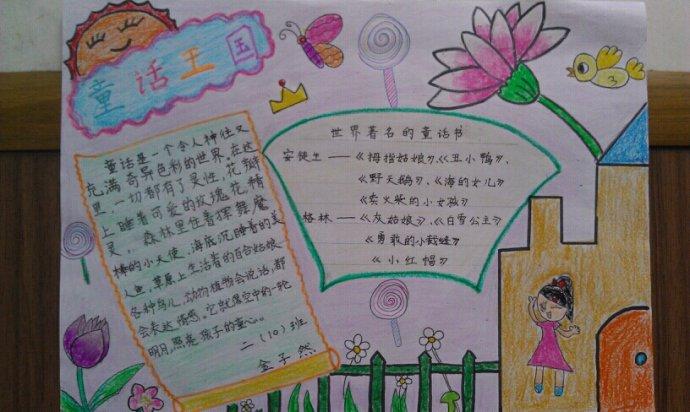 童话王国
童话是一个令人神往又
充满奇异色彩的世界。在这
里,一切都有了灵性,花瓣
上睡着可爱的玫瑰花精
灵。森林里住着挥舞魔
棒的小天使,海底沉睡着的美
人鱼,草原上生活着的百合姑娘
各种鸟儿,动物植物会说话,都
会表达情感。它就像空中的一轮
明月,照亮孩子的童心……
二(10)班
金子然
世界著名的童话书
安徒生——《拇指姑娘》、《丑小鸭》、
《野天鹅》、《海的女儿》
《卖火柴的小女孩》
格林——《灰姑娘》、《白雪公主》
《勇敢的小裁缝》
《小红帽》